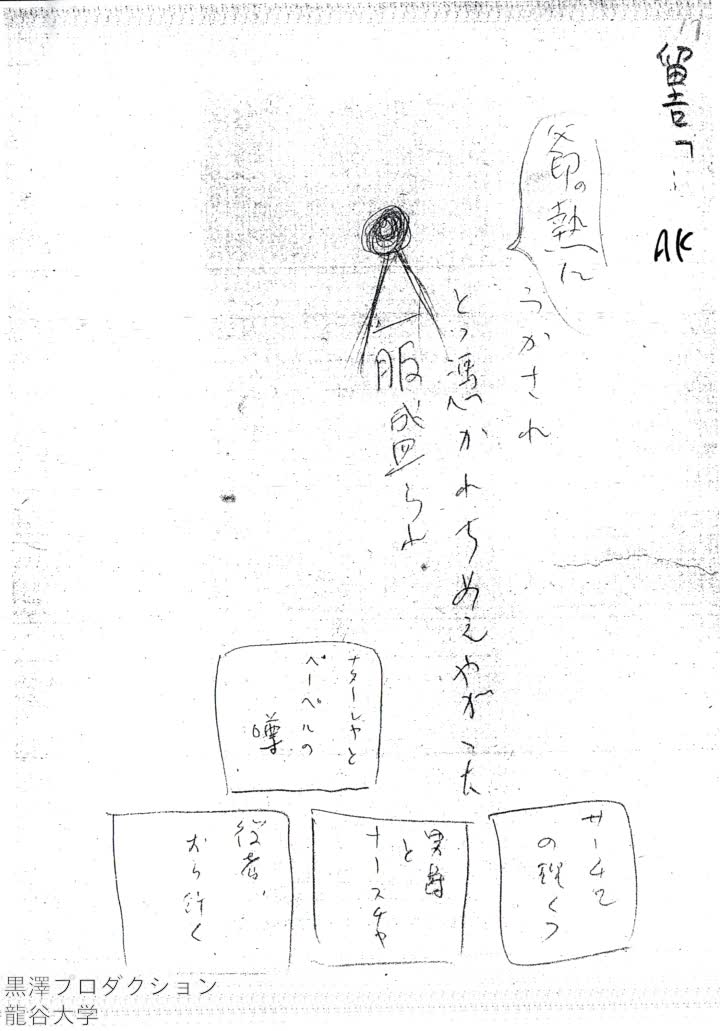 17
留吉「…
AK
爺の熱に
うかされ
とう憑かれちめえやがった
一服盛られ
ナターシャと
ペーペルの
噂
サーチンの
男爵
と
ナースチャ
役者、
黒澤プロダクション
龍谷大学